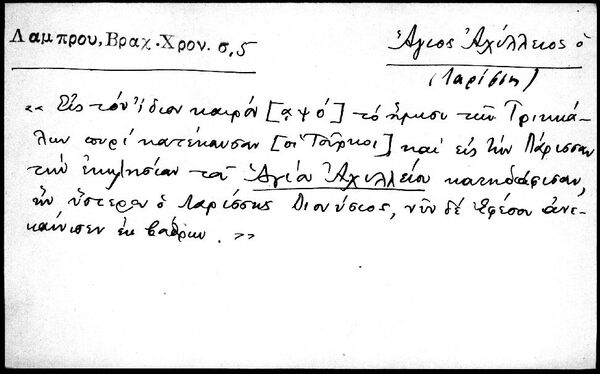 Λαμπρου, Βραχ. Χρον. σ. 5
Ἅγιος Ἀχίλλειος ὁ
(Λαρίσης)
« Εἰς τὸν ἴδιον καιρόν [αψό] τὸ ἥμισυ τῶν Τρικκά-
λων πυρὶ κατέκαυσαν [οἱ Τοῦρκοι], καὶ εἰς τὴν Λάρισσαν
τὴν ἐκκλησίαν τοῦ Ἁγίου Ἀχιλλείου κατηδάφισαν,
ἣν ὕστερον ὁ Λαρίσσης Διονύσιος, νῦν δὲ Ἐφέσου ἀνε-
καίνισεν ἐκ βάθρων. »